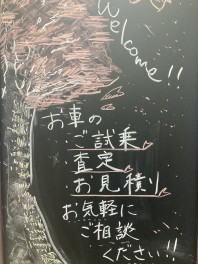 Welcome!!
お車の
ご試乗
査定
お見積り
お気軽に
ご相談
ください!!